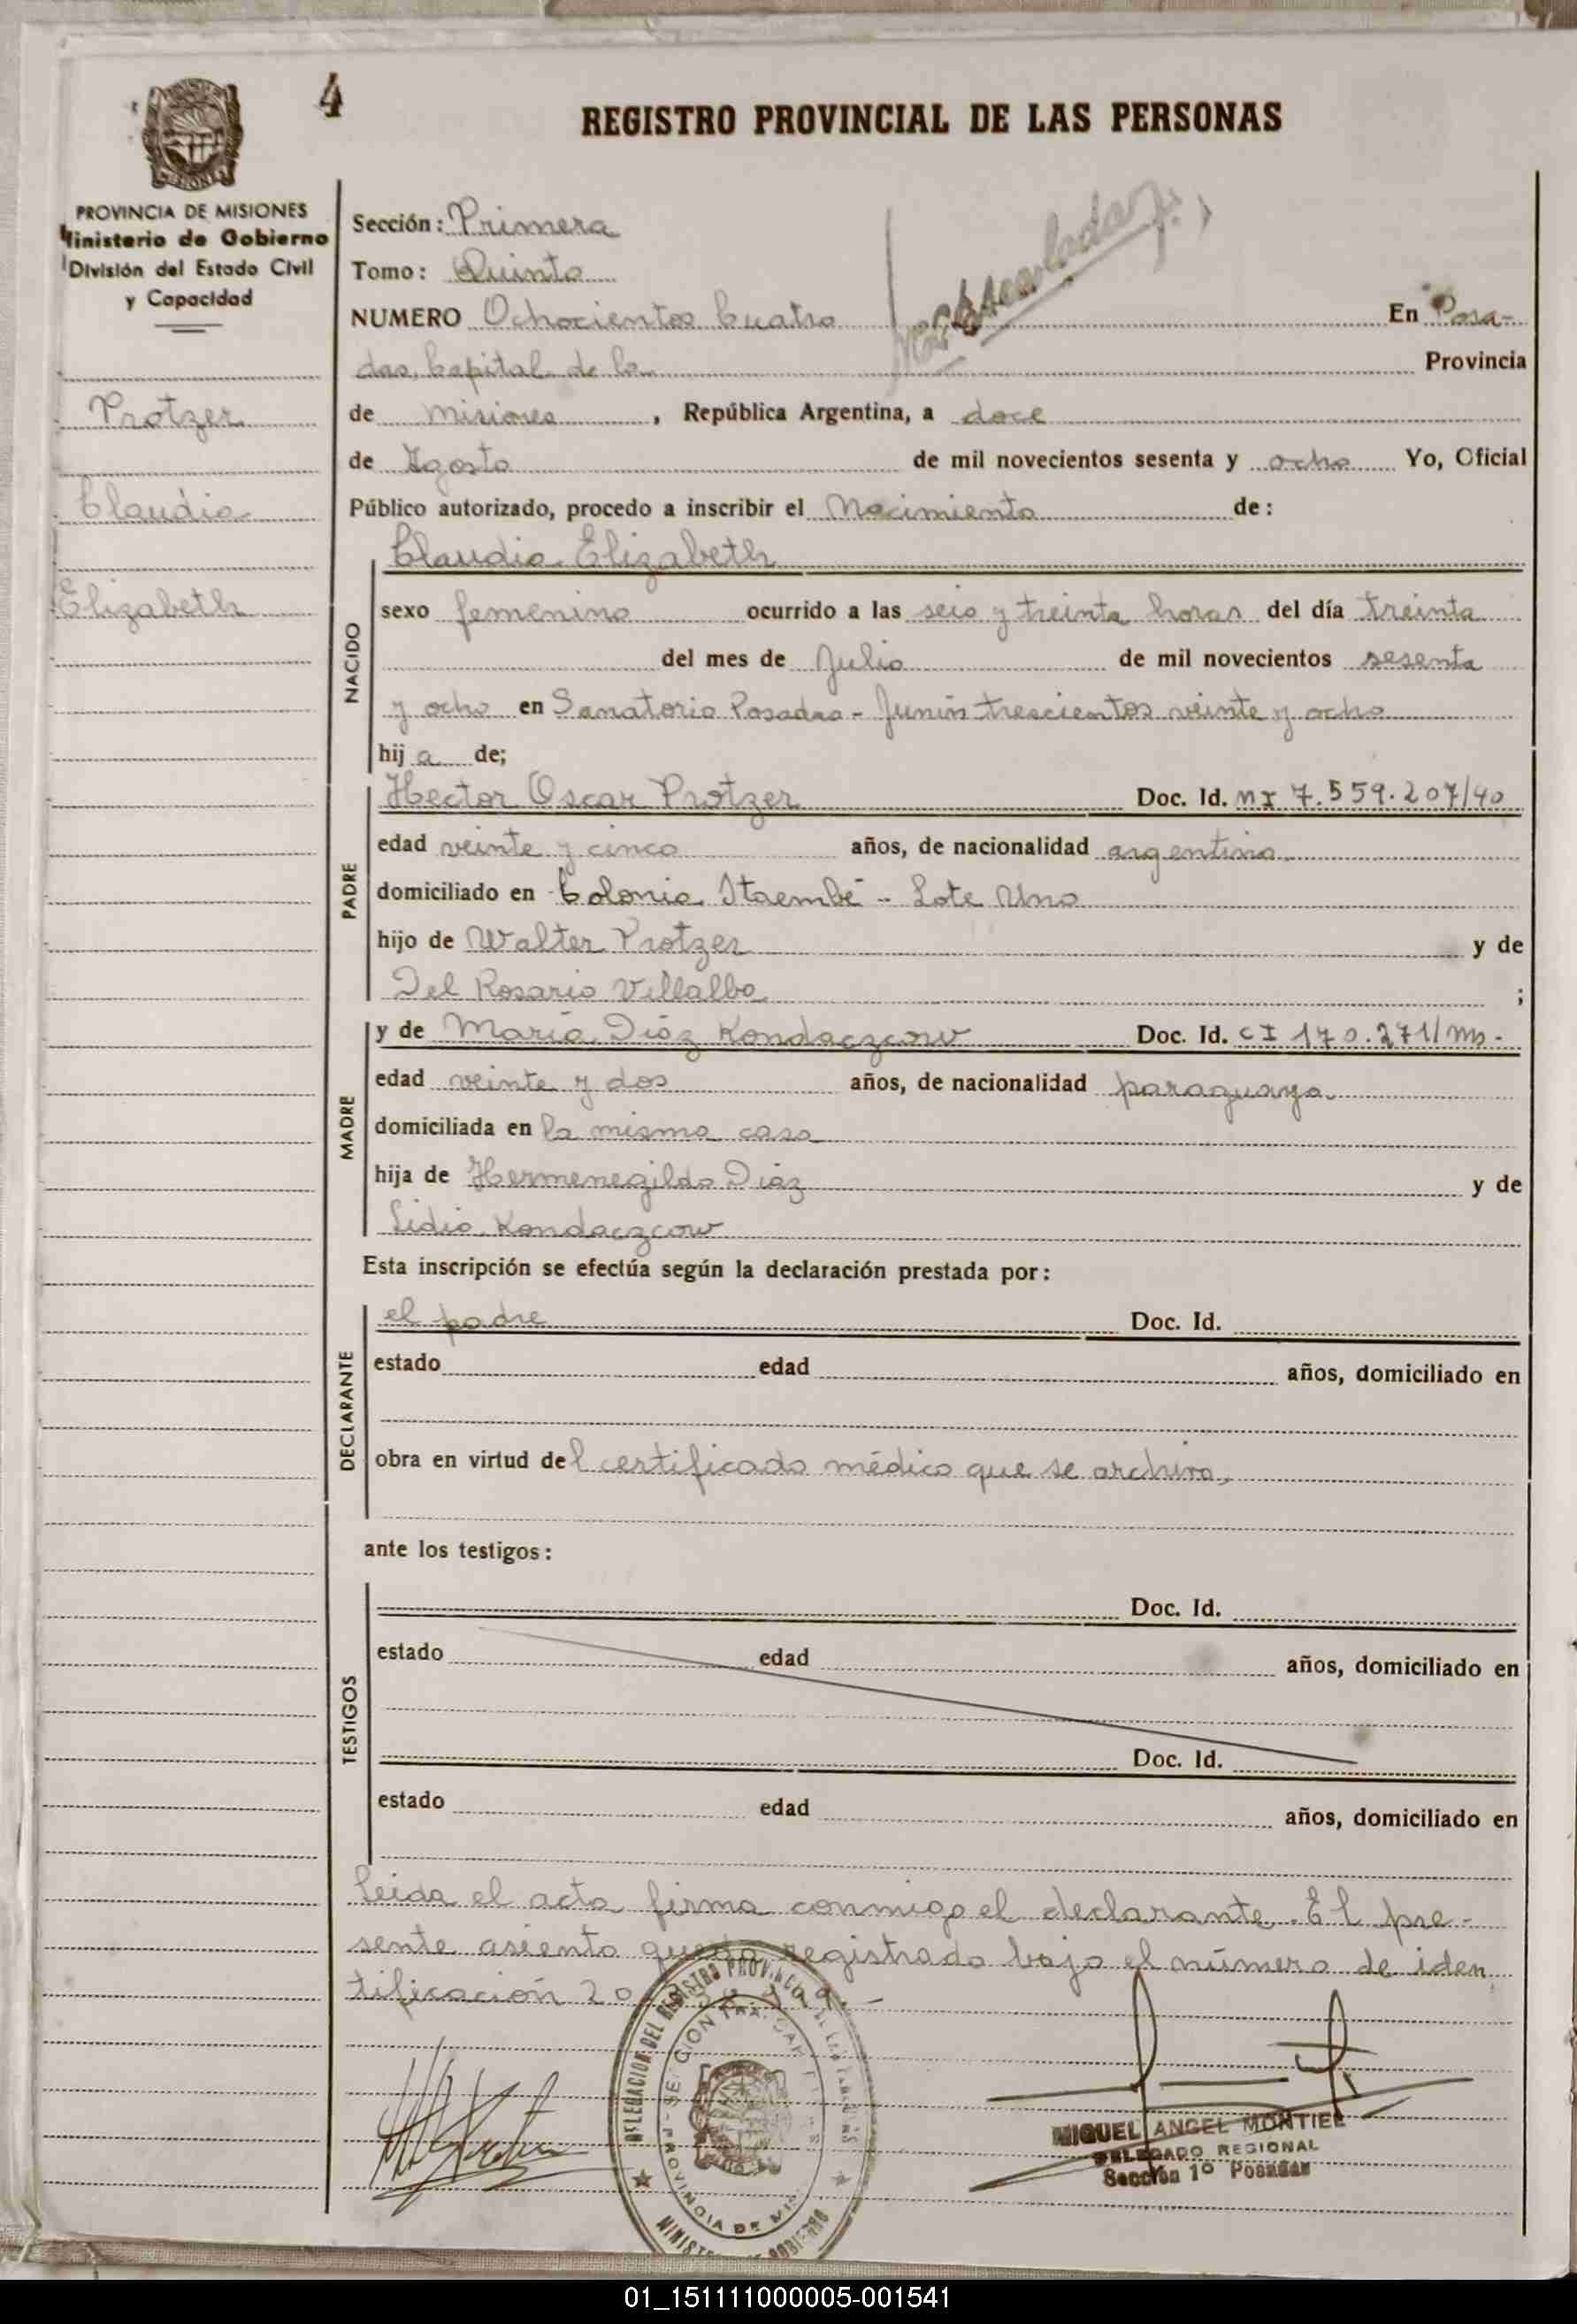 4
REGISTRO PROVINCIAL DE LAS PERSONAS
PROVINCIA DE MISIONES
Ministerio de Gobierno
División del Estado Civil
y Capacidad
Protzer
Claudia
Elizabeth
Sección: Primera
Tomo: Quinto
NUMERO Ochocientos Cuatro En Posa-
das, Capital de la Provincia
de Misiones, República Argentina, a doce
de Agosto de mil novecientos sesenta y ocho Yo, Oficial
Público autorizado, procedo a inscribir el Nacimiento de:
NACIDO
Claudia Elizabeth
sexo femenino ocurrido a las seis y treinta horas del día treinta
del mes de Julio de mil novecientos sesenta
y ocho en Sanatorio Posadas - Junín trescientos veinte y ocho
hija de;
PADRE
Hector Oscar Protzer Doc. Id. MI 7.559.207/40
edad veinte y cinco años, de nacionalidad argentina
domiciliado en Colonia Itaembé - Lote Uno
hijo de Walter Protzer y de
Del Rosario Villalba ;
MADRE
y de María Díaz Kondaczcow Doc. Id. CI 170.271/Mns.-
edad veinte y dos años, de nacionalidad paraguaya
domiciliada en la misma casa
hija de Hermenegildo Díaz y de
Lidia Kondaczcow
Esta inscripción se efectúa según la declaración prestada por:
DECLARANTE
el padre Doc. Id.
estado edad años, domiciliado en
obra en virtud del certificado médico que se archiva,
ante los testigos:
TESTIGOS
Doc. Id.
estado edad años, domiciliado en
Doc. Id.
estado edad años, domiciliado en
Leida el acta firma conmigo el declarante. El pre-
sente asiento queda registrado bajo el número de iden
tificación 20
DELEGACION DEL REGISTRO PROVINCIAL DE LAS PERSONAS
PROVINCIA DE MIS.
MIGUEL ANGEL MONTIEL
DELEGADO REGIONAL
Sección 1º Posadas
01_151111000005-001541